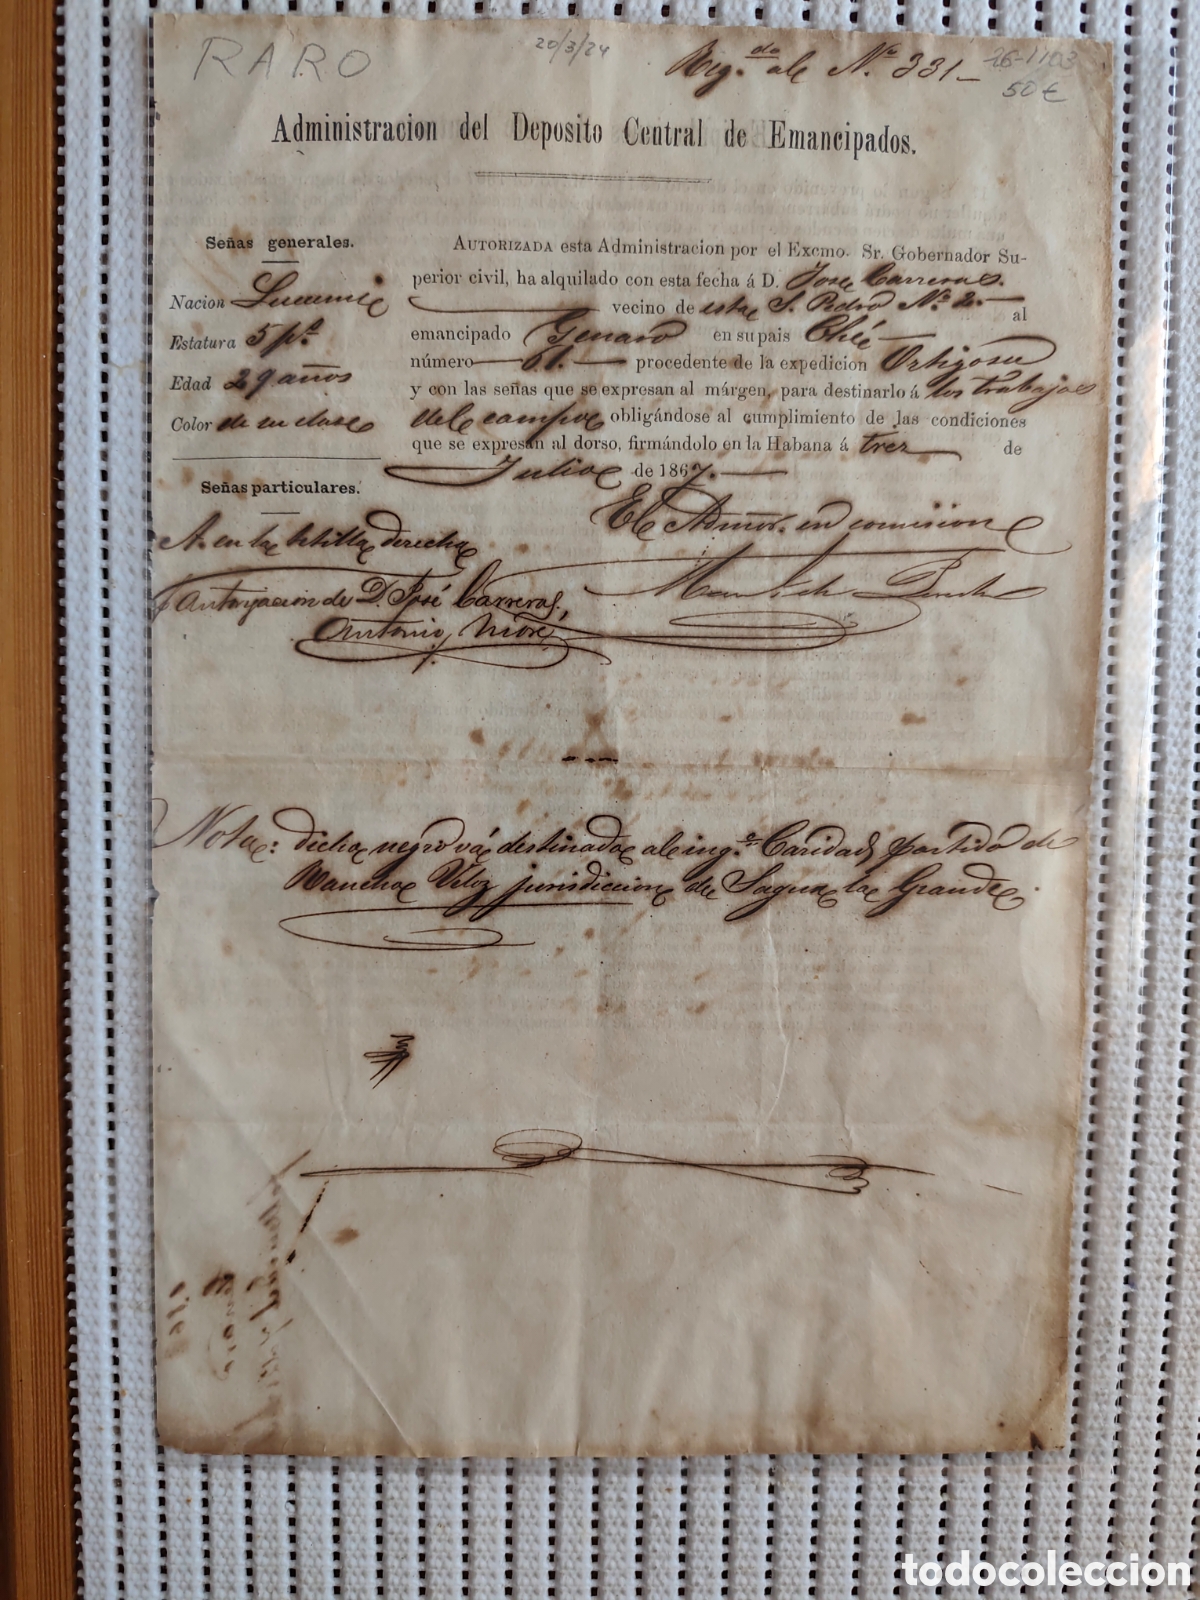 RARO
20/3/24
Reg.do al Nº 331-
26-1103
50 €
Administracion del Deposito Central de Emancipados.
Señas generales.
Nacion Lucumi
Estatura 5 ps.
Edad 29 años
Color de su clase
Señas particulares.
A. en la tetilla derecha
AUTORIZADA esta Administracion por el Excmo. Sr. Gobernador Su-
perior civil, ha alquilado con esta fecha á D. Jose Carreras.
vecino de esta S. Pedro Nº 2.— al
emancipado Genaro en su pais Ché—
número — 61. — procedente de la expedicion Ortigosa
y con las señas que se expresan al márgen, para destinarlo á los trabajos
del campo obligándose al cumplimiento de las condiciones
que se expresan al dorso, firmándolo en la Habana á tres de
Julio de 1867.—
El Admor. en comision
Autorizacion de D. José Carreras,
Antonio
Nota: dicho negro vá destinado al ing.º Caridad partido de
Rancho Veloz jurisdiccion de Sagua la Grande.
todocoleccion